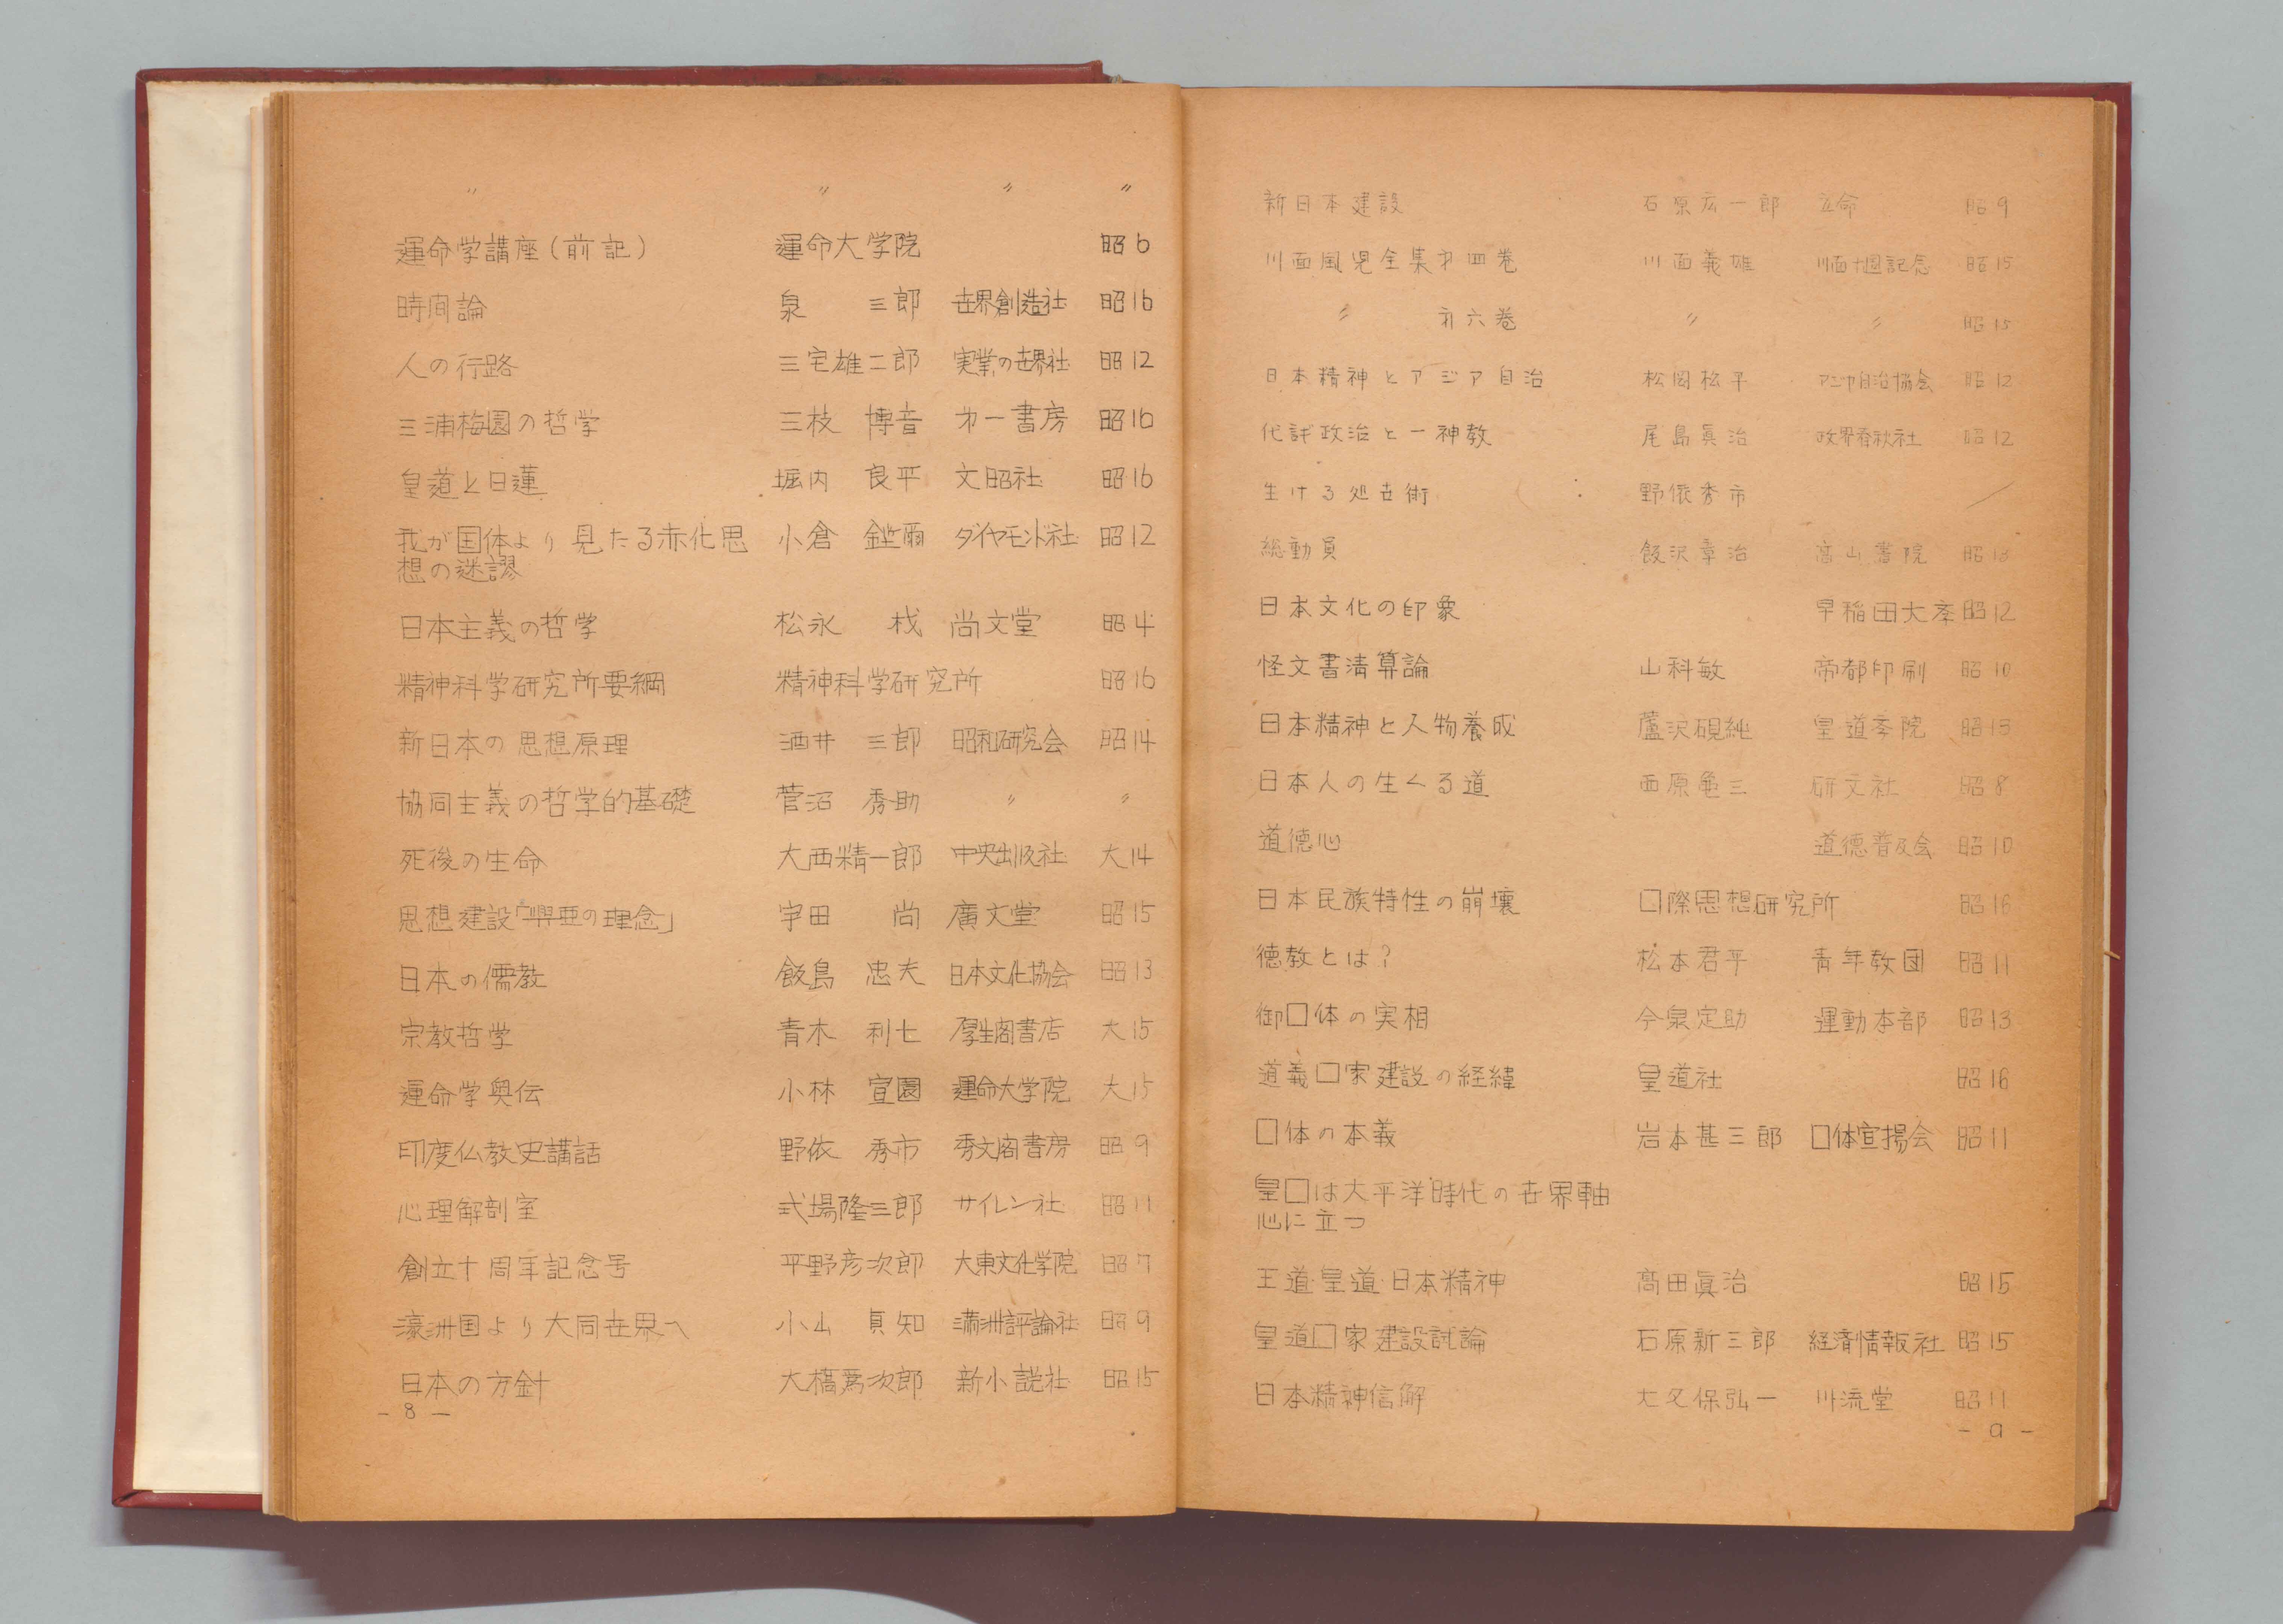 〃 〃 〃 〃
運命学講座(前記) 運命大学院 昭6
時間論 泉 三郎 世界創造社 昭16
人の行路 三宅雄二郎 実業の世界社 昭12
三浦梅園の哲学 三枝 博音 才一書房 昭16
皇道と日蓮 堀内 良平 文昭社 昭16
我が国体より見たる赤化思 小倉 鉱爾 ダイヤモンド社 昭12
想の迷謬
日本主義の哲学 松永 材 尚文堂 昭4
精神科学研究所要綱 精神科学研究所 昭16
新日本の思想原理 酒井 三郎 昭和研究会 昭14
協同主義の哲学的基礎 菅沼 秀助 〃 〃
死後の生命 大西精一郎 中央出版社 大14
思想建設「興亜の理念」 宇田 尚 廣文堂 昭15
日本の儒教 飯島 忠夫 日本文化協会 昭13
宗教哲学 青木 利七 厚生閣書店 大15
運命学奥伝 小林 宣園 運命大学院 大15
印度仏教史講話 野依 秀市 秀文閣書房 昭9
心理解剖室 式場隆三郎 サイレン社 昭11
創立十周年記念号 平野彦次郎 大東文化学院 昭7
濠洲国より大同世界へ 小山 貞知 満洲評論社 昭9
日本の方針 大橋為次郎 新小説社 昭15
- 8 -
新日本建設 石原広一郎 立命 昭9
川面凰児全集才四巻 川面義雄 川面十週記念 昭15
〃 才六巻 〃 〃 昭15
日本精神とアジア自治 松岡松平 アジヤ自治協会 昭12
代議政治と一神教 尾島眞治 政界春秋社 昭12
生ける処世術 野依秀市
総動員 飯沢章治 高山書院 昭13
日本文化の印象 早稲田大孝 昭12
怪文書清算論 山科敏 帝都印刷 昭10
日本精神と人物養成 蘆沢硯純 皇道孝院 昭13
日本人の生くる道 西原亀三 研文社 昭8
道徳心 道徳普及会 昭10
日本民族特性の崩壊 口際思想研究所 昭16
徳教とは? 松本君平 青年教団 昭11
御口体の実相 今泉定助 運動本部 昭13
道義口家建設の経緯 皇道社 昭16
口体の本義 岩本甚三郎 口体宣揚会 昭11
皇口は大平洋時代の世界軸
心に立つ
王道皇道日本精神 高田眞治 昭15
皇道口家建設試論 石原新三郎 経済情報社 昭15
日本精神信解 大久保弘一 川流堂 昭11
- 9 -